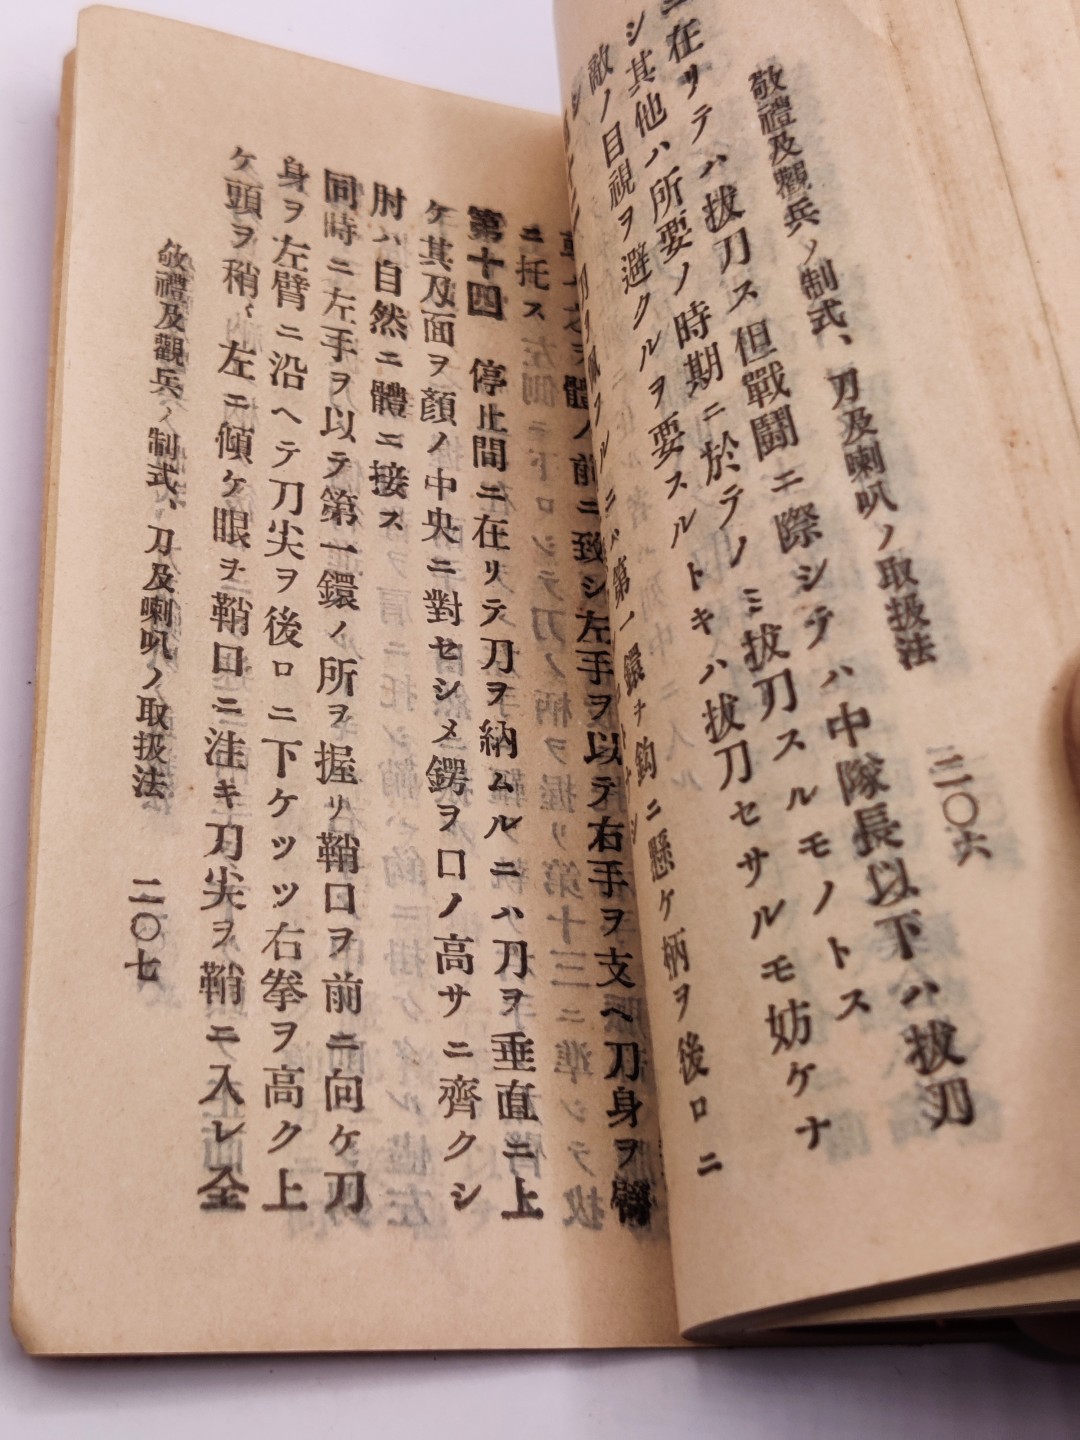 敬禮及觀兵ノ制式、刀及喇叭ノ取扱法　二〇六
ニ在リテハ拔刀ス但戰鬪ニ際シテハ中隊長以下ハ拔刀
シ其他ハ所要ノ時期ニ於テノミ拔刀スルモノトス
敵ノ目視ヲ避クルヲ要スルトキハ拔刀セサルモ妨ケナ
シ
刀ヲ佩フルニハ第一鐶ヲ鉤ニ懸ケ柄ヲ後ロニ
體ノ前ニ致シ左手ヲ以テ右手ヲ支ヘ刀身ヲ臂
ニ托ス
第十四　停止間ニ在リテ刀ヲ納ムルニハ刀ヲ垂直ニ上
ケ其及面ヲ顏ノ中央ニ對セシメ鍔ヲ口ノ高サニ齊クシ
肘ハ自然ニ體ニ接ス
同時ニ左手ヲ以テ第一鐶ノ所ヲ握リ鞘口ヲ前ニ向ケ刀
身ヲ左臂ニ沿ヘテ刀尖ヲ後ロニ下ケツツ右拳ヲ高ク上
ケ頭ヲ稍〻左ニ傾ケ眼ヲ鞘口ニ注キ刀尖ヲ鞘ニ入レ全
敬禮及觀兵ノ制式、刀及喇叭ノ取扱法　二〇七